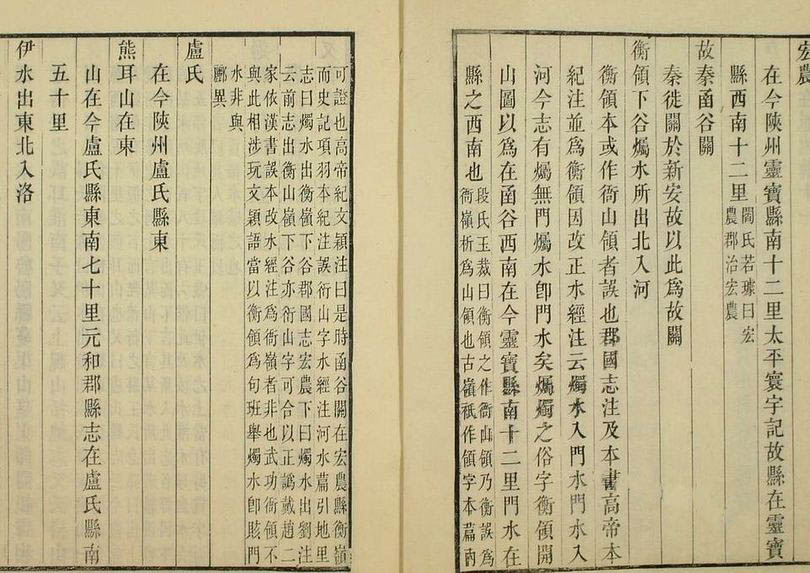 宏農
在今陝州靈寶縣南十二里太平寰宇記故縣在靈寶
縣西南十二里閻氏若璩曰宏
農郡治宏農
故秦函谷關
秦徙關於新安故以此爲故關
衡領下谷爥水所出北入河
衡領本或作衙山領者誤也郡國志注及本書高帝本
紀注並爲衡領因改正水經注云燭水入門水門水入
河今志有爥無門爥水卽門水矣爥燭之俗字衡領開
山圖以爲在函谷西南在今靈寶縣南十二里門水在
縣之西南也段氏玉裁曰衡領之作衙山領乃衡誤爲
衙嶺析爲山領也古嶺祇作領字本篇內
可證也高帝紀文穎注曰是時函谷關在宏農縣衡嶺
而史記項羽本紀注誤衍山字水經注河水篇引地里
志曰燭水出衡嶺下谷郡國志宏農下曰燭水出劉注
云前志出衡山嶺下谷亦衍山字可合以正譌戴趙二
家依漢書誤本改水經注爲衙嶺者非也武功衙領不
與此相涉玩文穎語當以衡領爲句班舉燭水卽賅門
水非與
酈異
盧氏
在今陝州盧氏縣東
熊耳山在東
山在今盧氏縣東南七十里元和郡縣志在盧氏縣南
五十里
伊水出東北入洛